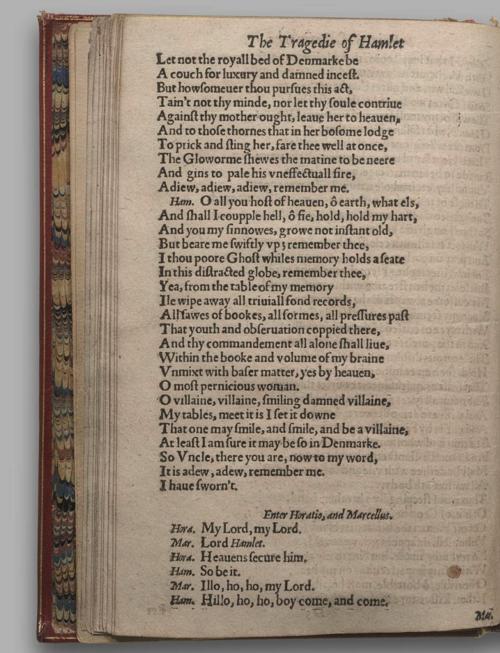 The Tragedie of Hamlet
Let not the royall bed of Denmarke be
A couch for luxury and damned incest.
But howsomeuer thou pursues this act,
Tain't not thy minde, nor let thy soule contriue
Against thy mother ought, leaue her to heauen,
And to those thornes that in her bosome lodge
To prick and sting her, fare thee well at once,
The Gloworme shewes the matine to be neere
And gins to pale his vneffectuall fire,
Adiew, adiew, adiew, remember me.
Ham. O all you host of heauen, ô earth, what els,
And shall I coupple hell, ô fie, hold, hold my hart,
And you my sinnowes, growe not instant old,
But beare me swiftly vp; remember thee,
I thou poore Ghost whiles memory holds a seate
In this distracted globe, remember thee,
Yea, from the table of my memory
Ile wipe away all triuiall fond records,
All sawes of bookes, all formes, all pressures past
That youth and obseruation coppied there,
And thy commandement all alone shall liue,
Within the booke and volume of my braine
Vnmixt with baser matter, yes by heauen,
O most pernicious woman.
O villaine, villaine, smiling damned villaine,
My tables, meet it is I set it downe
That one may smile, and smile, and be a villaine,
At least I am sure it may be so in Denmarke.
So Vncle, there you are, now to my word,
It is adew, adew, remember me.
I haue sworn't.
Enter Horatio, and Marcellus.
Hora. My Lord, my Lord.
Mar. Lord Hamlet.
Hora. Heauens secure him.
Ham. So be it.
Mar. Illo, ho, ho, my Lord.
Ham. Hillo, ho, ho, boy come, and come.
Mar.